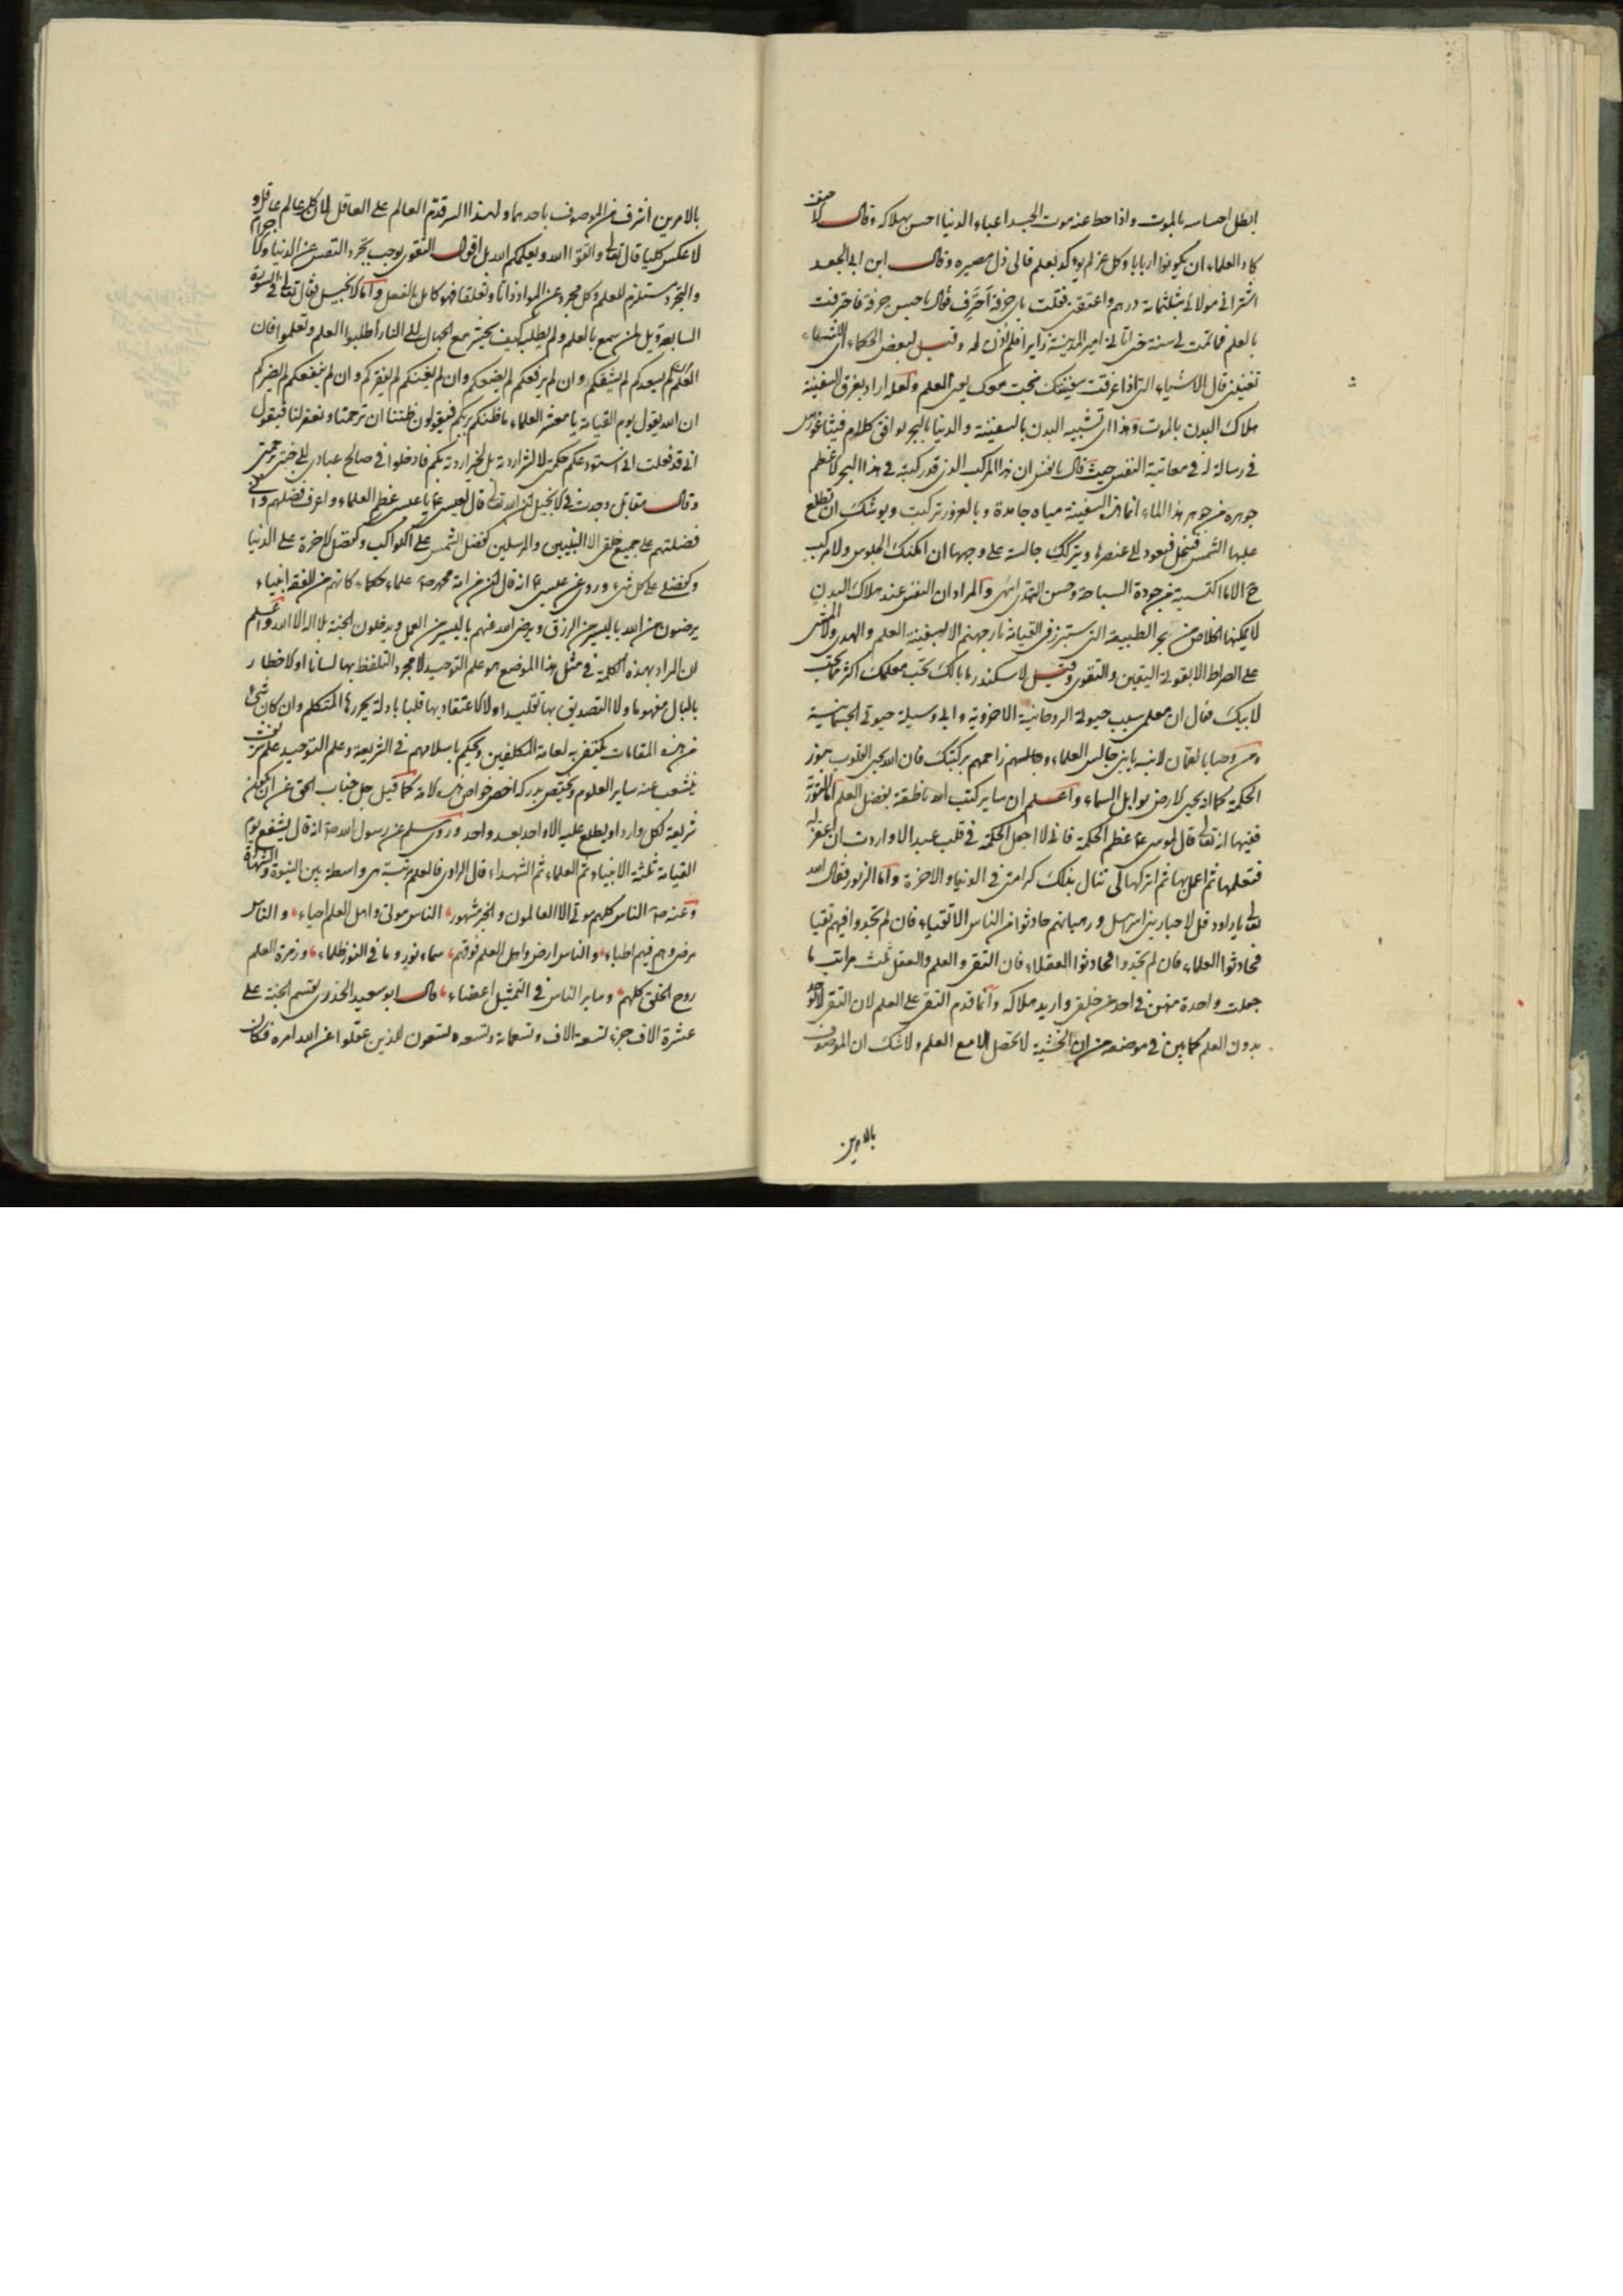 ابطل احساسه بالموت واذا حط عنه موت الجسد اعباء الدنيا احس بهلاكه وقال
كاد العلماء ان يكونوا اربابا وكل عز لم يؤكد بعلم فالى ذل مصيره وقال ابن ابى الجعد
اشترانى مولائى بثلثمائة درهم واعتقنى فقلت باى حرفة احترف فاحترفت
بالعلم فما تمت لى سنة حتى اتانى امير المدينة زايرا فلم اذن له وقيل لبعض الحكماء اى الاشياء
تقتنى قال الاشياء التى اذا غرقت سفينتك نجت معك يعنى العلم ولعله اراد بغرق السفينة
هلاك البدن بالموت وهذا اى تشبيه البدن بالسفينة والدنيا بالبحر يوافق كلام فيثاغورس
فى رسالة له فى معاتبة النفس حيث قال يا نفس ان هذا المركب الذى قد ركبته فى هذا البحر الاعظم
جوهره من جوهر هذا الماء انما هذه السفينة مياه جامدة وبالعرض تركبت ويوشك ان تطلع
عليها الشمس فتنحل فتعود الى عنصرها ويتركك جالسة على وجهها ان امكنك الجلوس ولا مركب
ح الا ما اكتسبته من جودة السباحة وحسن التهدى انتهى والمراد ان النفس عند هلاك البدن
لا يمكنها الخلاص من بحر الطبيعة التى ستبرز فى القيامة نار جهنم الا بسفينة العلم والهدى ولا المشى
على الصراط الا بقوة اليقين والتقوى وقيل لاسكندر ما بالك تحب معلمك اكثر مما تحب
لابيك فقال ان معلمى سبب حيوتى الروحانية الاخروية وابى وسيلة حيوتى الجسمانية
ومن وصايا لقمان لابنه يا بنى جالس العلماء وجالسهم زاحمهم بركبتك فان الله يحيى القلوب بنور
الحكمة كما يحيى الارض بوابل السماء واعلم ان ساير كتب الله ناطقة بفضل العلم اما التورية
ففيها انه تعالى قال لموسى ع عظم الحكمة فانى لا اجعل الحكمة فى قلب عبد الا واردت ان اغفر له
فتعلمها ثم اعمل بها ثم اتركها كى تنال بذلك كرامتى فى الدنيا والاخرة واما الزبور فقال الله
تعالى يا داود قل لاحبار بنى اسرائيل ورهبانهم حادثوا من الناس الاتقياء فان لم تجدوا فيهم تقيا
فحادثوا العلماء فان لم تجدوا فحادثوا العقلاء فان التقى والعلم والعقل ثلث مراتب ما
جعلت واحدة منهن فى احد من خلقى واريد هلاكه وانما قدم التقى على العلم لان التقى لا يوجد
بدون العلم كما بين فى موضعه من ان الخشية لا تحصل الا مع العلم ولا شك ان الموصوف
بالامرين
بالامرين اشرف من الموصوف باحدهما ولهذا السر قدم العالم على العاقل لان كل عالم عاقل و
لا عكس كليا قال تعالى واتقوا الله ويعلمكم الله بل اقول التقوى يوجب تجرد النفس عن الدنيا
والتجرد مستلزم للعلم وكل مجرد عن المواد ذاتا وتعلقا فهو كامل بالفعل واما الانجيل فقال تعالى فى السورة
السابعة ويل لمن سمع بالعلم ولم يطلبه كيف يحشر مع الجهال الى النار اطلبوا العلم وتعلموا فان
العلم ان لم يسعدكم لم يشقكم وان لم يرفعكم لم يضعكم وان لم يغنكم لم يفقركم وان لم ينفعكم لم يضركم
ان الله يقول يوم القيامة يا معشر العلماء ما ظنكم بربكم فيقولون ظننا ان ترحمنا وتغفر لنا فيقول
انى قد فعلت انى استودعكم حكمتى لا لشر اردته بل لخير اردته بكم فادخلوا فى صالح عبادى الى جنتى برحمتى
وقال مقاتل وجدت فى الانجيل ان الله تعالى قال لعيسى ع يا عيسى عظم العلماء واعرف فضلهم
فضلتهم على جميع خلقى الا النبيين والمرسلين كفضل الشمس على الكواكب وكفضل الاخرة على الدنيا
وكفضلى على كل شىء وروى عن عيسى ع انه قال ان من امة محمد ص علماء حكماء كانهم من الفقه انبياء
يرضون من الله باليسير من الرزق ويرضى الله عنهم باليسير من العمل ويدخلون الجنة بلا اله الا الله واعلم
ان المراد بهذه الكلمة فى مثل هذا الموضع هو علم التوحيد لا مجرد التلفظ بها لسانا او الاخطار
بالبال مفهوما ولا التصديق بها تقليدا ولا الاعتقاد بها قلبا بادلة يحررها المتكلم وان كان شىء
من هذه المقامات يكتفى به لعامة المكلفين ويحكم باسلامهم فى الشريعة وعلم التوحيد علم شريف
ينشعب عنه ساير العلوم ويختص بدركه اخص خواص كما قيل جل جناب الحق عن ان يكون
شريعة لكل وارد او يطلع عليه الا واحد بعد واحد وروى مسلم عن رسول الله ص انه قال يشفع يوم
القيامة ثلثة الانبياء ثم العلماء ثم الشهداء قال الراوى فالعلم مرتبة هى واسطة بين النبوة والشهادة
وعنه ص الناس كلهم موتى الا العالمون والخبر مشهور، الناس موتى واهل العلم احياء، والناس
مرضى وهم فيهم اطباء، والناس ارض واهل العلم فوقهم، سماء نور وما فى النور ظلماء، وزمرة العلم
روح الخلق كلهم، وساير الناس فى التمثيل اعضاء، قال ابو سعيد الخدرى يقسم الجنة على
عشرة الاف جزء تسعة الاف وتسعمائة وتسعة وتسعون للذين عقلوا عن الله امره فكان